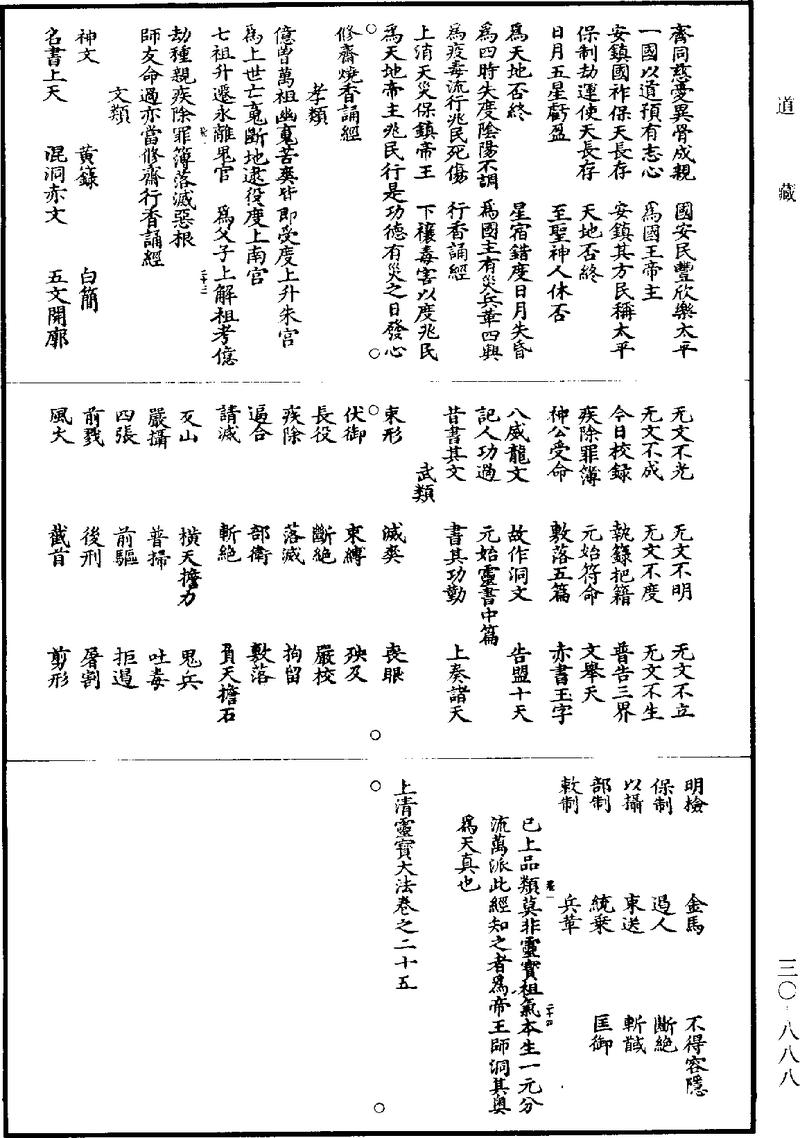 道藏
齊同慈愛異骨成親　國安民豐欣樂太平
一國以道預有志心　爲國王帝主
安鎮國祚保天長存　安鎮其方民稱太平
保制劫運使天長存　天地否終
日月五星虧盈　至聖神人休否
爲天地否終　星宿錯度日月失昏
爲四時失度陰陽不調　爲國主有災兵革四興
爲疫毒流行兆民死傷　行香誦經
上消天災保鎮帝王　下禳毒害以度兆民
爲天地帝主兆民行是功德有災之日發心
修齋燒香誦經
孝類
億曾萬祖幽䰟苦爽皆即受度上升朱宮
爲上世亡䰟斷地逮役度上南宮
七祖升遷永離鬼官　爲父子上解祖考億
劫種親疾除罪簿落滅惡根
師友命過亦當修齋行香誦經
文類
神文　黃籙　白簡
名書上天　混洞赤文　五文開廓
无文不光　无文不明　无文不立
无文不成　无文不度　无文不生
今日校録　執籙把籍　普告三界
疾除罪簿　元始符命　文舉天
神公受命　敷落五篇　赤書玉字
八威龍文　故作洞文　告盟十天
記人功過　元始靈書中篇
昔書其文　書其功勤　上奏諸天
武類
束形　滅爽　喪眼
伏御　束縛　殃及
長役　斷絶　嚴校
疾除　落滅　拘留
逼合　部衛　敷落
請滅　斬絶　負天擔石
刄山　橫天擔力　鬼兵
嚴攝　普掃　吐毒
四張　前驅　拒遏
前戮　後刑　屠割
風火　截首　剪形
明檢　金馬　不得容隱
保制　過人　斷絶
以攝　束送　斬馘
部制　統乗　匡御
敕制　兵革
已上品類莫非靈寶祖氣本生一元分
流萬派此經知之者爲帝王師洞其奥
爲天真也
上清靈寶大法卷之二十五
三〇-八八八